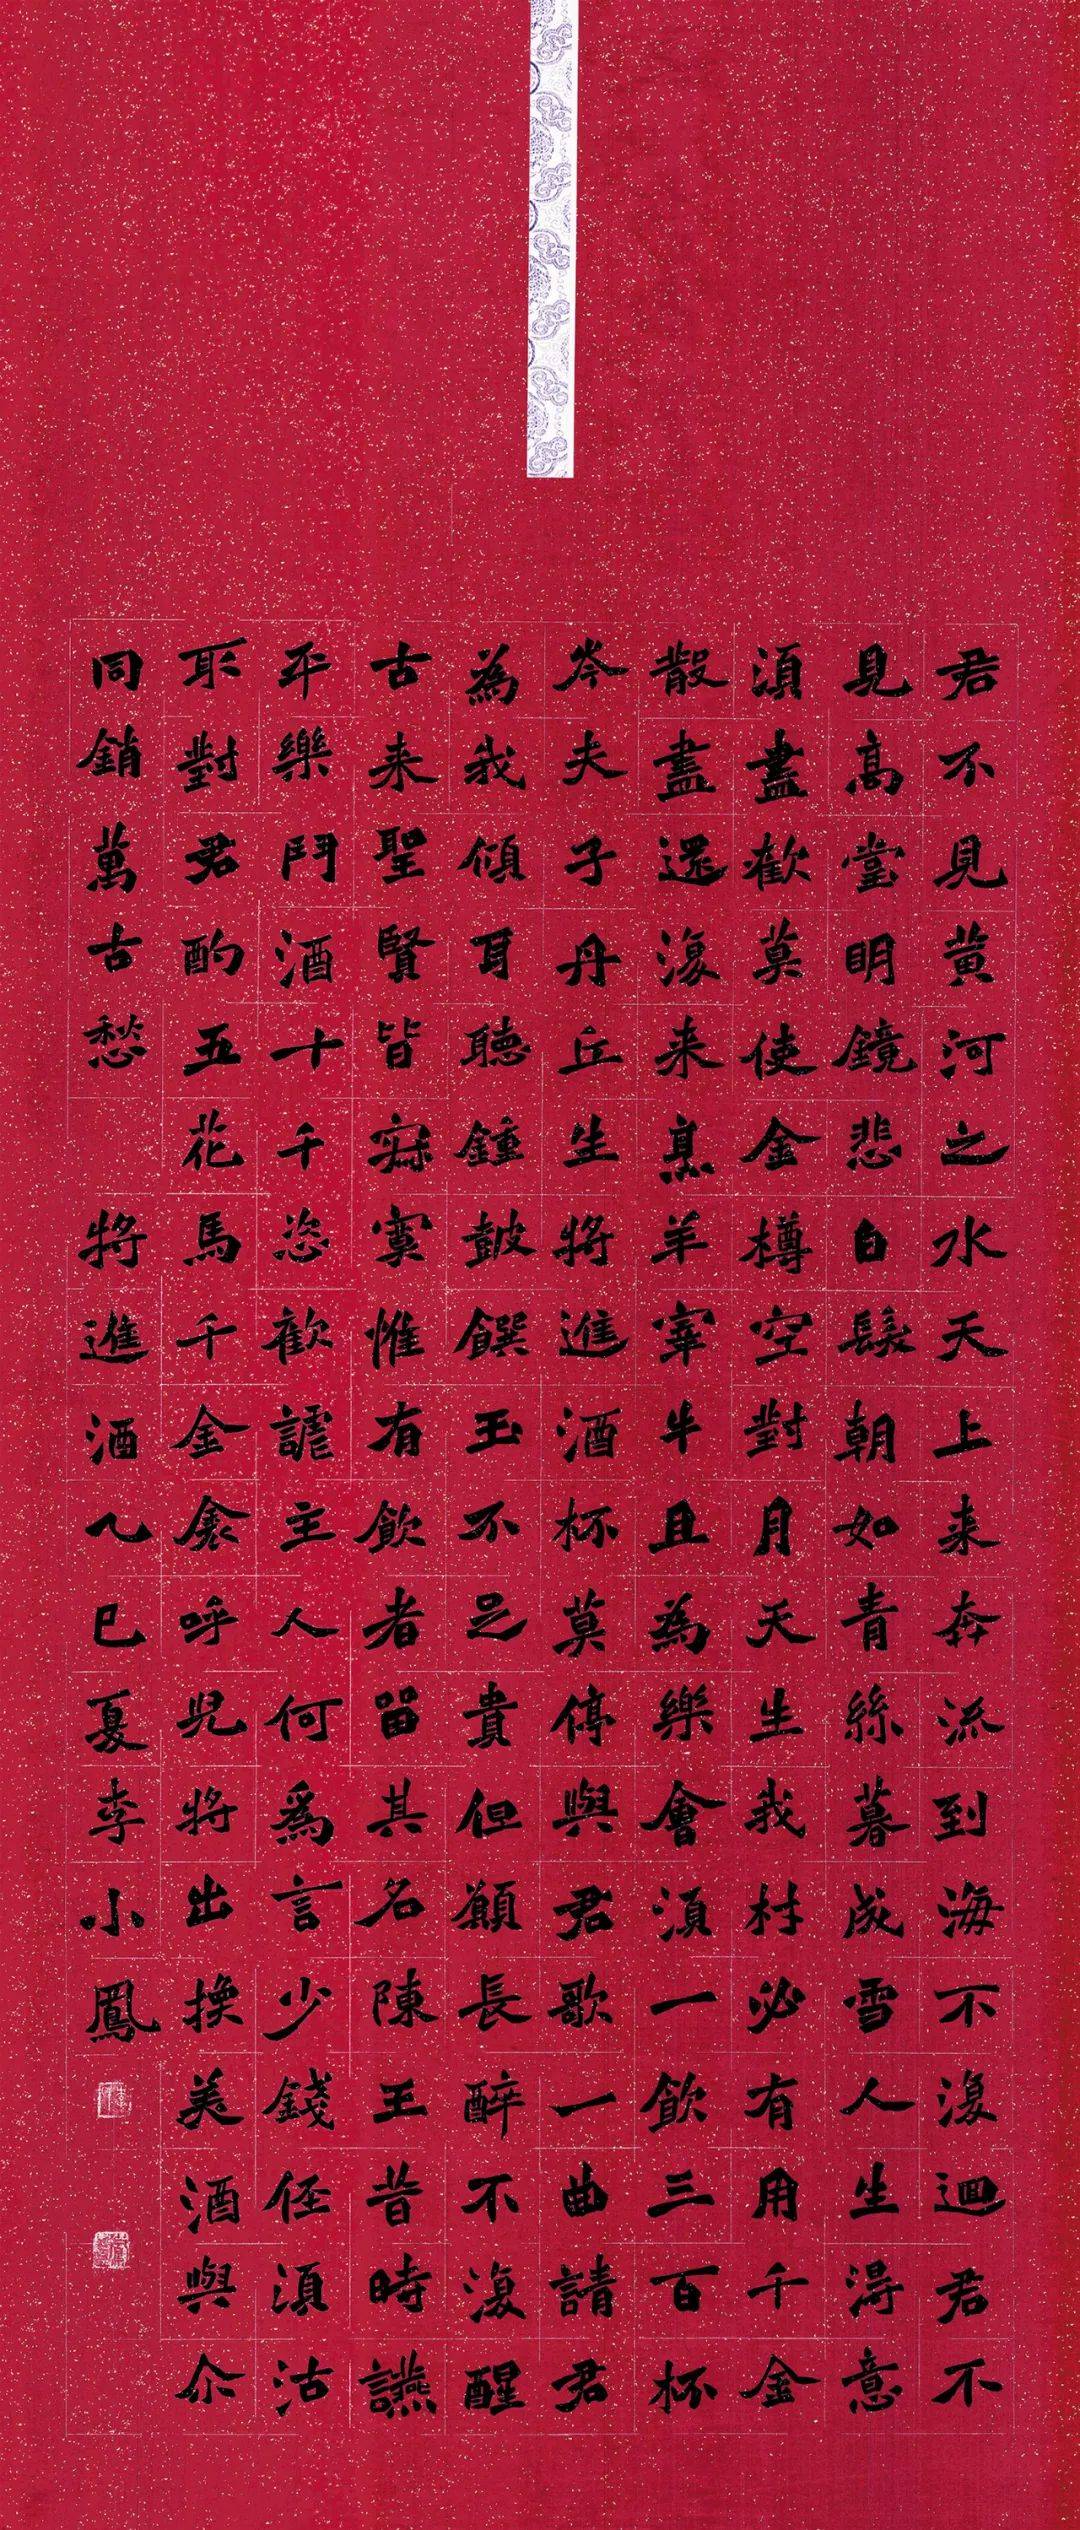 君不見黃河之水天上来奔流到海不復迴君不
見高堂明鏡悲白髮朝如青絲暮成雪人生得意
須盡歡莫使金樽空對月天生我材必有用千金
散盡還復来烹羊宰牛且為樂會須一飲三百杯
岑夫子丹丘生將進酒杯莫停與君歌一曲請君
為我傾耳聽鍾鼓饌玉不足貴但願長醉不復醒
古来聖賢皆寂寞惟有飲者留其名陳王昔時讌
平樂鬥酒十千恣歡謔主人何爲言少錢徑須沽
取對君酌五花馬千金裘呼兒將出換美酒與尒
同銷萬古愁 將進酒乙巳夏李小鳳